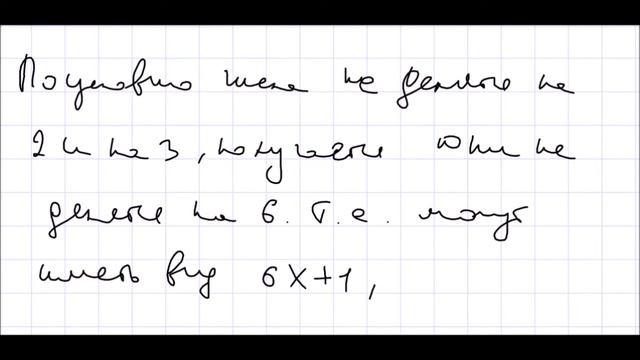 По условию числа не делятся на
2 и на 3, получается они не
делятся на 6. Т.е. могут
иметь вид 6x+1,